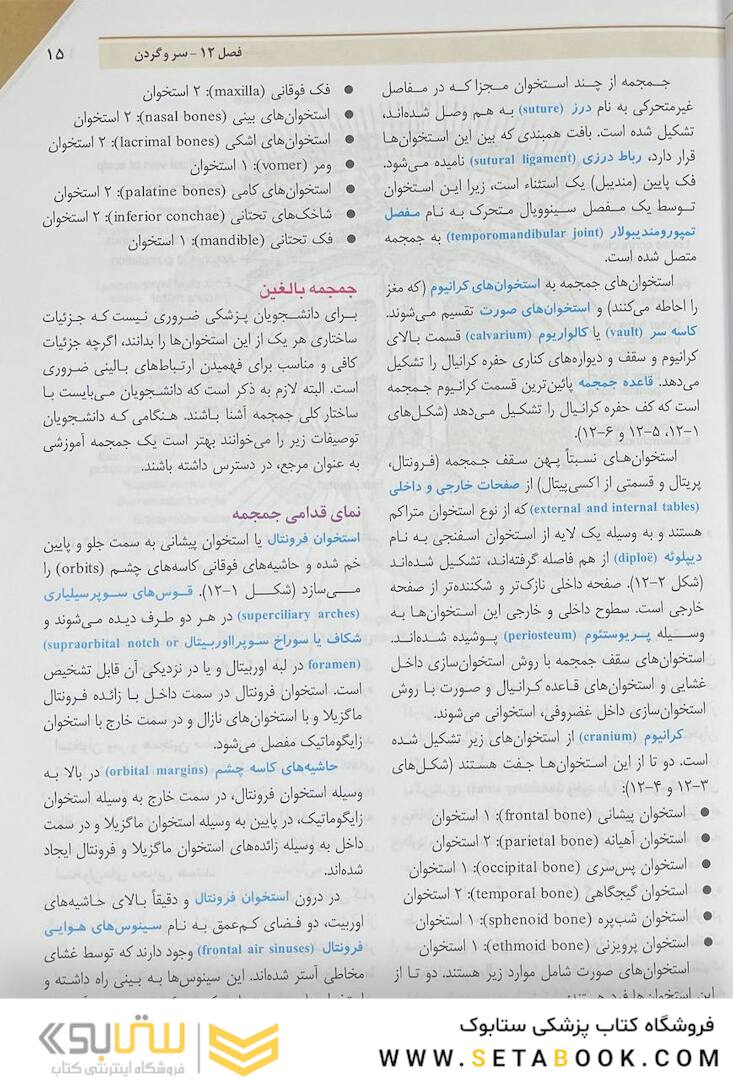 فصل ۱۲ - سر و گردن
۱۵
جـمجمه از چـند استخوان مـجزا کـه در مـفاصل
غیرمتحرکی به نام درز (suture) به هـم وصل شـده‌اند،
تشکیل شده است. بافت همبندی که بین این استخوان‌هـا
قرار دارد، رباط درزی (sutural ligament) نامیده مـی‌شود.
فک پایین (مندیبل) یک استثناء است، زیرا ایـن اسـتخوان
تـوسط یک مـفصل سـینوویال مـتحرک بـه نـام مـفصل
تمپورومندیبولار (temporomandibular joint) به جـمجمه
متصل شده است.
استخوان‌های جمجمه به استخوان‌های کرانیوم (که مغز
را احاطه می‌کنند) و استخوان‌های صورت تقسیم مـی‌شوند.
کاسه سر (vault) یا کالواریوم (calvarium) قسمت بـالای
کرانیوم و سقف و دیواره‌های کناری حفره کرانیال را تشکیل
می‌دهد. قاعده جمجمه پائین‌ترین قسمت کرانیوم جـمجمه
است که کف حفره کرانیال را تشکیل مـی‌دهد (شکل‌های
۱-۱۲، ۵-۱۲ و ۶-۱۲).
استخوان‌هـای نسـبتاً پـهن سـقف جـمجمه (فـرونتال،
پریتال و قسمتی از اکسـی‌پیتال) از صـفحات خارجی و داخلی
(external and internal tables) که از نوع استخوان متراکم
هستند و به وسیله یک لایه از اسـتخوان اسـفنجی بـه نـام
دیپلوئه (diploë) از هـم فاصله گرفته‌اند، تشکیل شـده‌اند
(شکل ۲-۱۲). صفحه داخلی نازک‌تر و شکننده‌تر از صـفحه
خارجی است. سطوح داخلی و خارجی این اسـتخوان‌هـا بـه
وسـیله پـریوستئوم (periosteum) پـوشیده شـده‌انـد.
استخوان‌های سقف جمجمه با روش استخوان‌سازی داخـل
غشایی و استخوان‌های قـاعده کـرانیال و صـورت بـا روش
استخوان‌سازی داخل غضروفی، استخوانی می‌شوند.
کرانیوم (cranium) از استخوان‌های زیر تشکیل شـده
است. دو تا از این استخوان‌هـا جـفت هسـتند (شکل‌های
۳-۱۲ و ۴-۱۲):
● استخوان پیشانی (frontal bone): ۱ استخوان
● استخوان آهیانه (parietal bone): ۲ استخوان
● استخوان پس‌سری (occipital bone): ۱ استخوان
● استخوان گیجگاهی (temporal bone): ۲ استخوان
● استخوان شب‌پره (sphenoid bone): ۱ استخوان
● استخوان پرویزنی (ethmoid bone): ۱ استخوان
استخوان‌های صورت شامل موارد زیر هستند. دو تـا از
این استخوان‌ها فرد هستند:
● فک فوقانی (maxilla): ۲ استخوان
● استخوان‌های بینی (nasal bones): ۲ استخوان
● استخوان‌های اشکی (lacrimal bones): ۲ استخوان
● ومر (vomer): ۱ استخوان
● استخوان‌های کامی (palatine bones): ۲ استخوان
● شاخک‌های تحتانی (inferior conchae): ۲ استخوان
● فک تحتانی (mandible): ۱ استخوان
جمجمه بالغین
بـرای دانشـجویان پـزشکی ضروری نیست کـه جـزئیات
ساختاری هر یک از این استخوان‌ها را بدانند، اگرچه جزئیات
کافی و مناسب برای فهمیدن ارتباط‌های بـالینی ضـروری
است. البته لازم به ذکر است که دانشجویان می‌بایست بـا
ساختار کلی جمجمه آشنا باشند. هـنگامی کـه دانشـجویان
توصیفات زیر را می‌خوانند بهتر است یک جمجمه آموزشی
به عنوان مرجع، در دسترس داشته باشند.
نمای قدامی جمجمه
استخوان فرونتال یا استخوان پیشانی به سمت جلو و پایین
خم شده و حاشیه‌های فوقانی کاسه‌های چشم (orbits) را
مـــی‌سازد (شکــل ۱-۱۲). قــوس‌های ســوپرسیلیاری
(superciliary arches) در هـر دو طـرف دیـده مـی‌شوند و
شکاف یا سوراخ سـوپرااوربـیتال (supraorbital notch or
foramen) در لبه اوربیتال و یا در نزدیکی آن قابل تشخیص
است. استخوان فرونتال در سمت داخـل بـا زائـده فـرونتال
ماگزیلا و با استخوان‌های نازال و در سمت خارج با استخوان
زایگوماتیک مفصل می‌شود.
حاشیه‌های کاسه چشم (orbital margins) در بالا بـه
وسیله استخوان فرونتال، در سمت خارج به وسیله استخوان
زایگوماتیک، در پایین به وسیله استخوان ماگزیلا و در سمت
داخل به وسیله زائده‌های استخوان ماگزیلا و فرونتال ایجاد
شده‌اند.
در درون استخوان فـرونتال و دقـیقاً بـالای حـاشیه‌های
اوربیت، دو فـضای کـم‌عمق بـه نـام سـینوس‌های هـوایـی
فرونتال (frontal air sinuses) وجود دارند که توسط غشای
مخاطی آستر شده‌اند. این سینوس‌ها به بـینی راه داشـته و
فروشگاه کتاب پزشکی ستابوک
WWW.SETABOOK.COM
ستابوک
فروشگاه اینترنتی کتاب